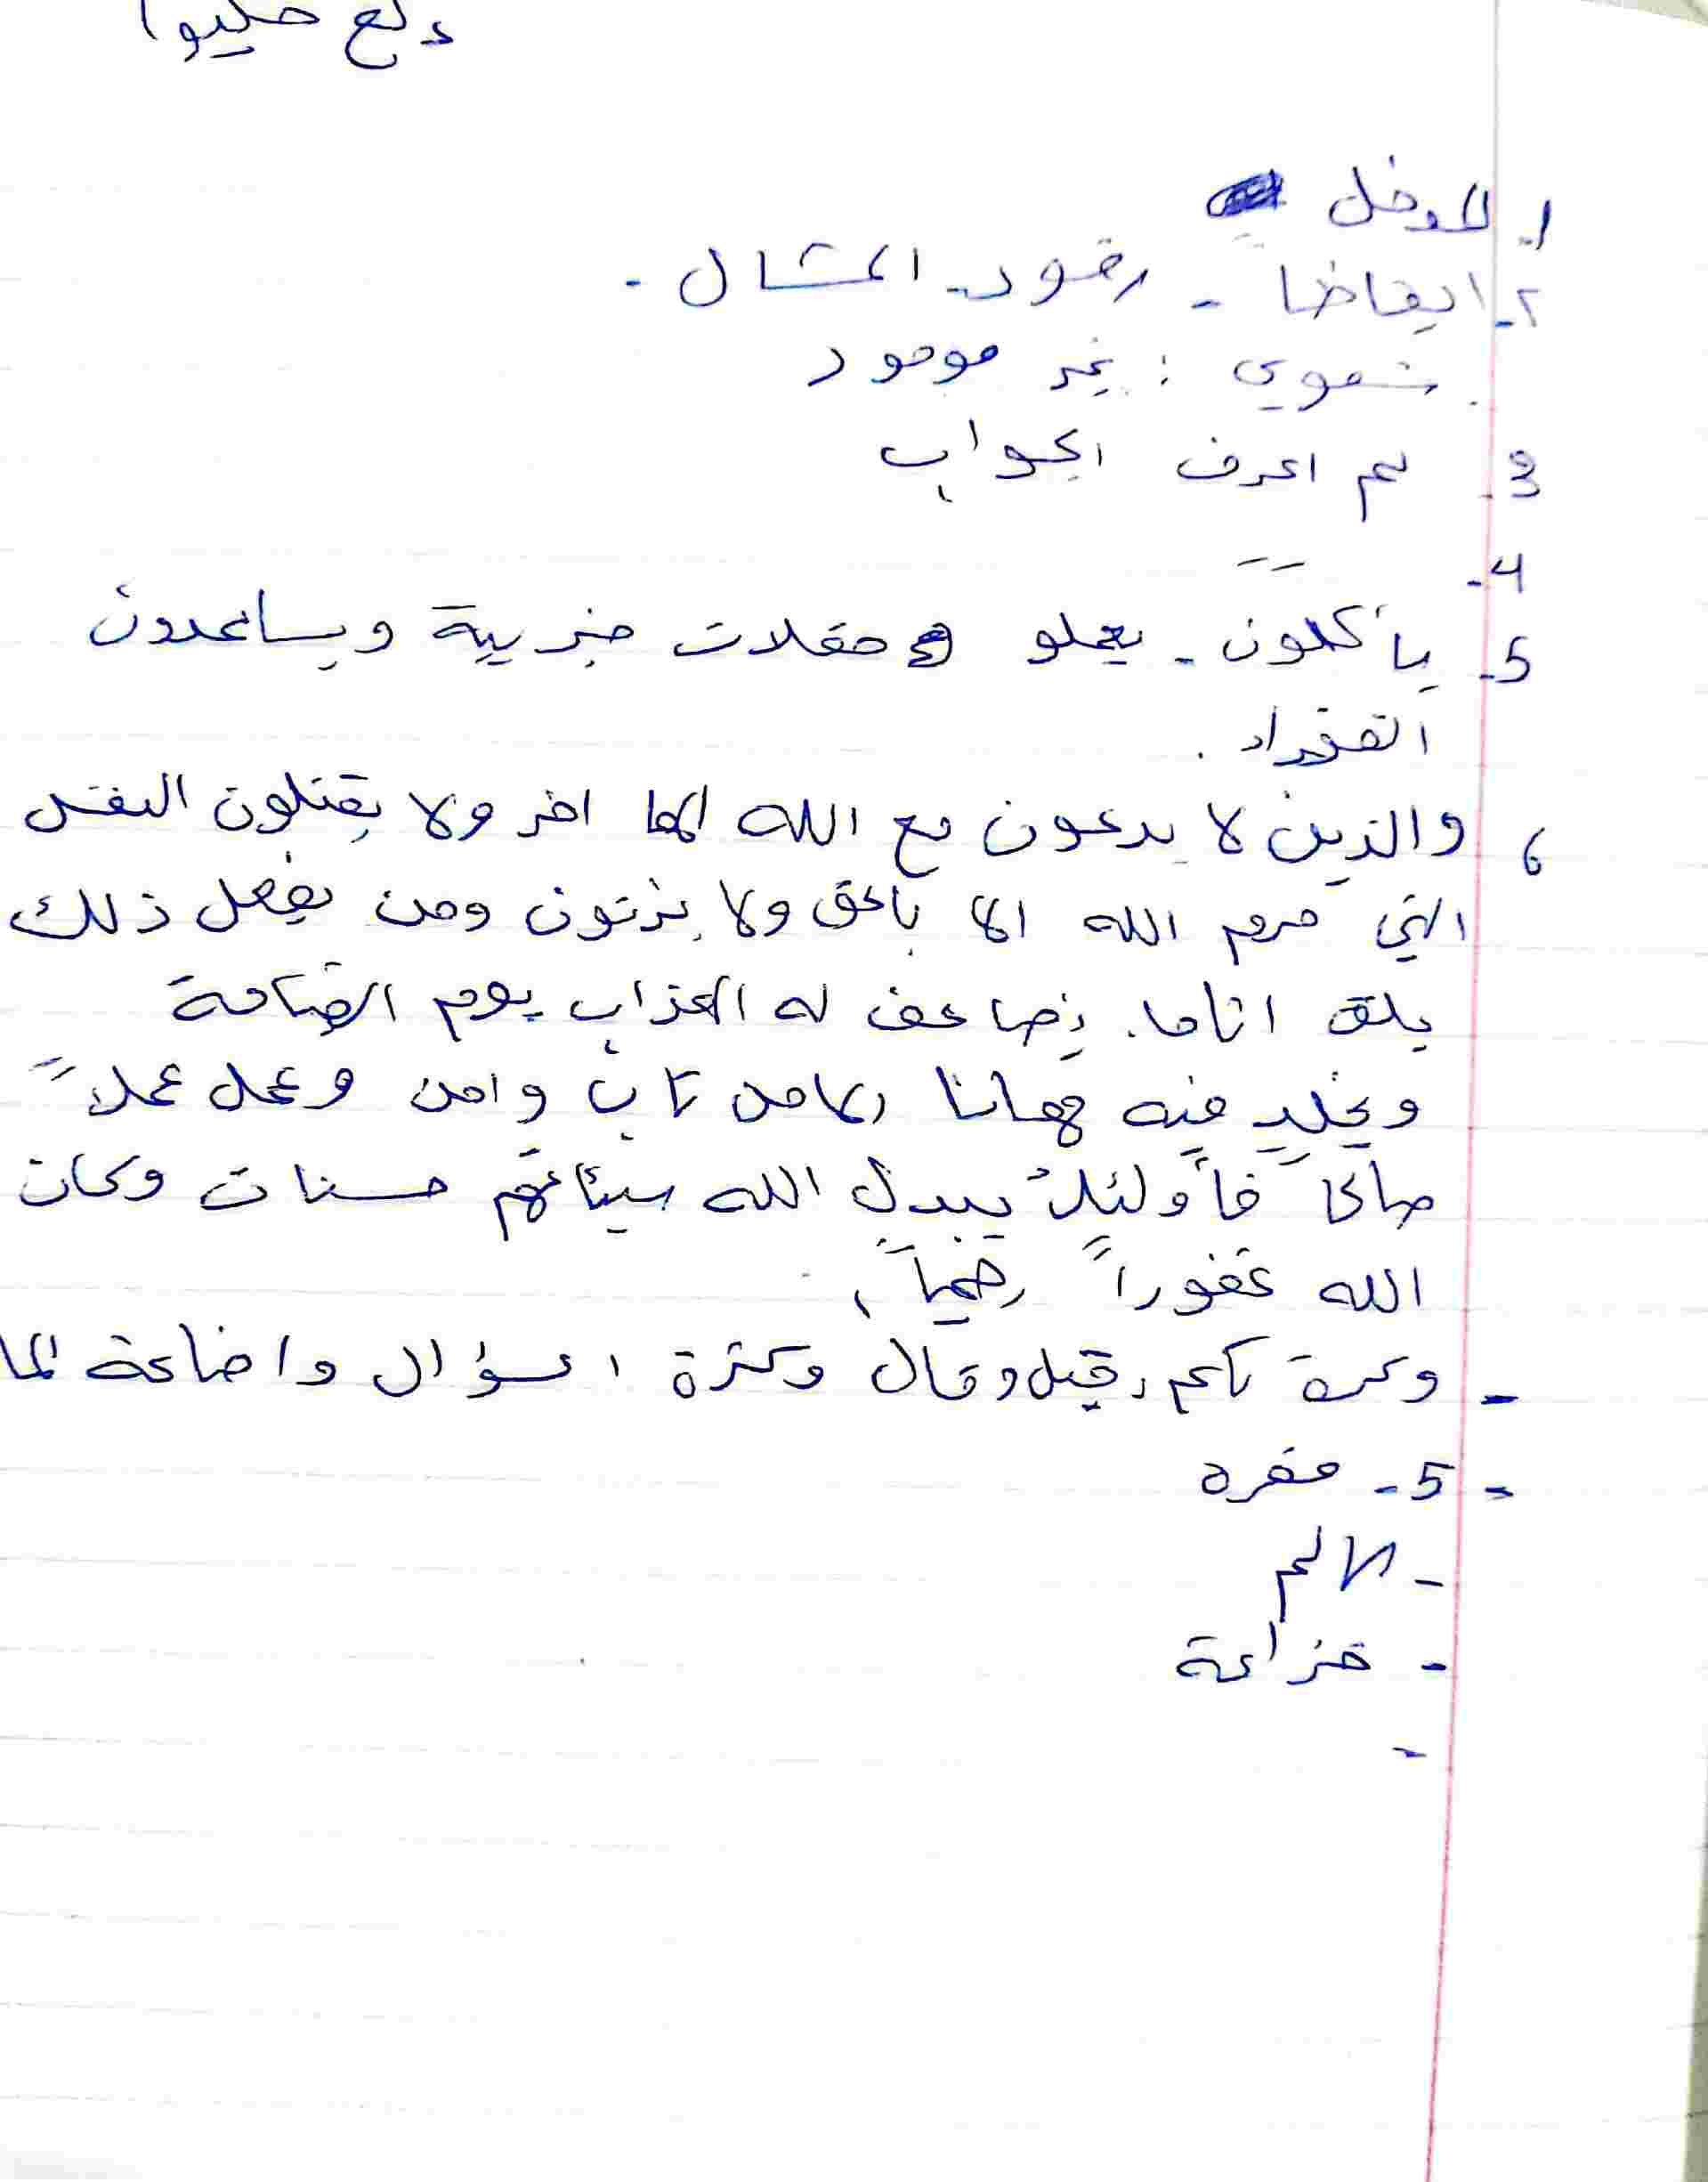 1. المدخل
2- ايقاضا - رقود - الشمال .
شعوري : غير موجود
3. لم اعرف الجواب
4- --
5- يأكلون - يعملو حفلات خيرية ويساعدون
الفقراء .
6 والذين لا يدعون مع الله الها اخر ولا يقتلون النفس
التي حرم الله الا بالحق ولا يزنون ومن يفعل ذلك
يلق اثاما. يضاعف له العذاب يوم القيامة
ويخلد فيه مهانا الا من تاب وامن وعمل عملاً
صالحاً فأولئك يبدل الله سيئاتهم حسنات وكان
الله غفوراً رحيماً
- وكره لكم قيل وقال وكثرة السؤال واضاعة الما
- 5- مغرة
- الالم
- خزاعة
-